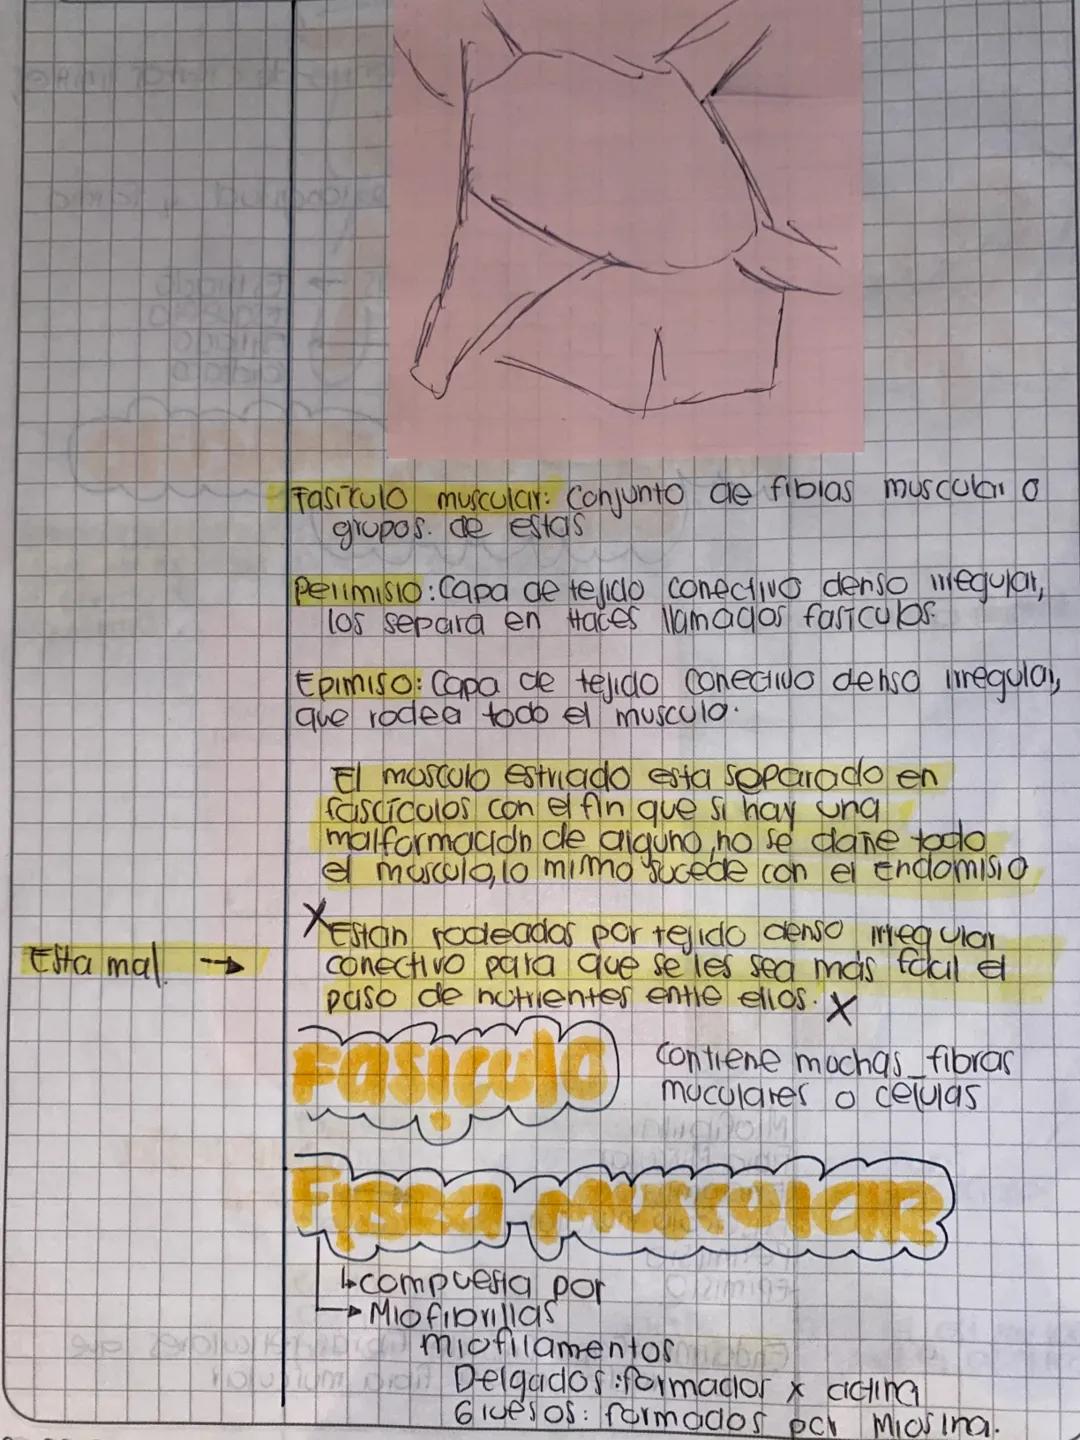 Fasículo muscular: Conjunto de fibras muscular o
grupos. de estas
Perimisio: Capa de tejido conectivo denso irregular,
los separa en Haces llamados fasículos.
Epimiso: Capa de tejido conectivo denso irregular,
que rodea todo el musculo.
El musculo estriado esta separado en
fascículos con el fin que si hay una
malformación de alguno, no se dañe todo
el musculo, lo mismo sucede con el Endomisio
X Estan rodeados por tejido denso irregular
Esta mal. →
conectivo para que se les sea más fácil el
paso de nutrientes entre ellos. X
Fasiculo
Contiene muchas fibras
muculares o celulas
Fibra muscular
↳ compuesta por
→ Miofibrillas
miofilamentos
Delgados: formador x actina
Gruesos: formados por Miosina.